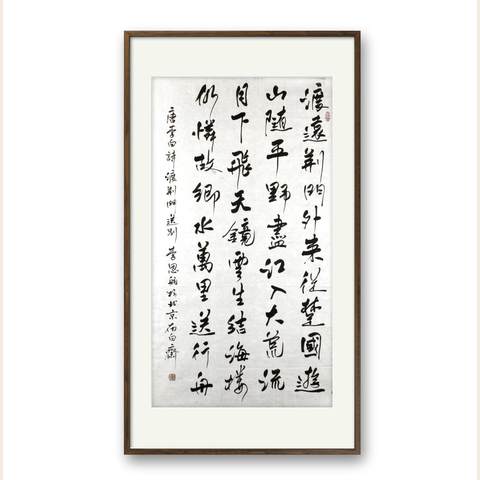 渡遠荆門外来從楚國遊
山隨平野盡江入大荒流
月下飛天鏡雲生結海樓
仍憐故鄉水萬里送行舟
唐李白詩渡荆門送别 思 於北京 白齋